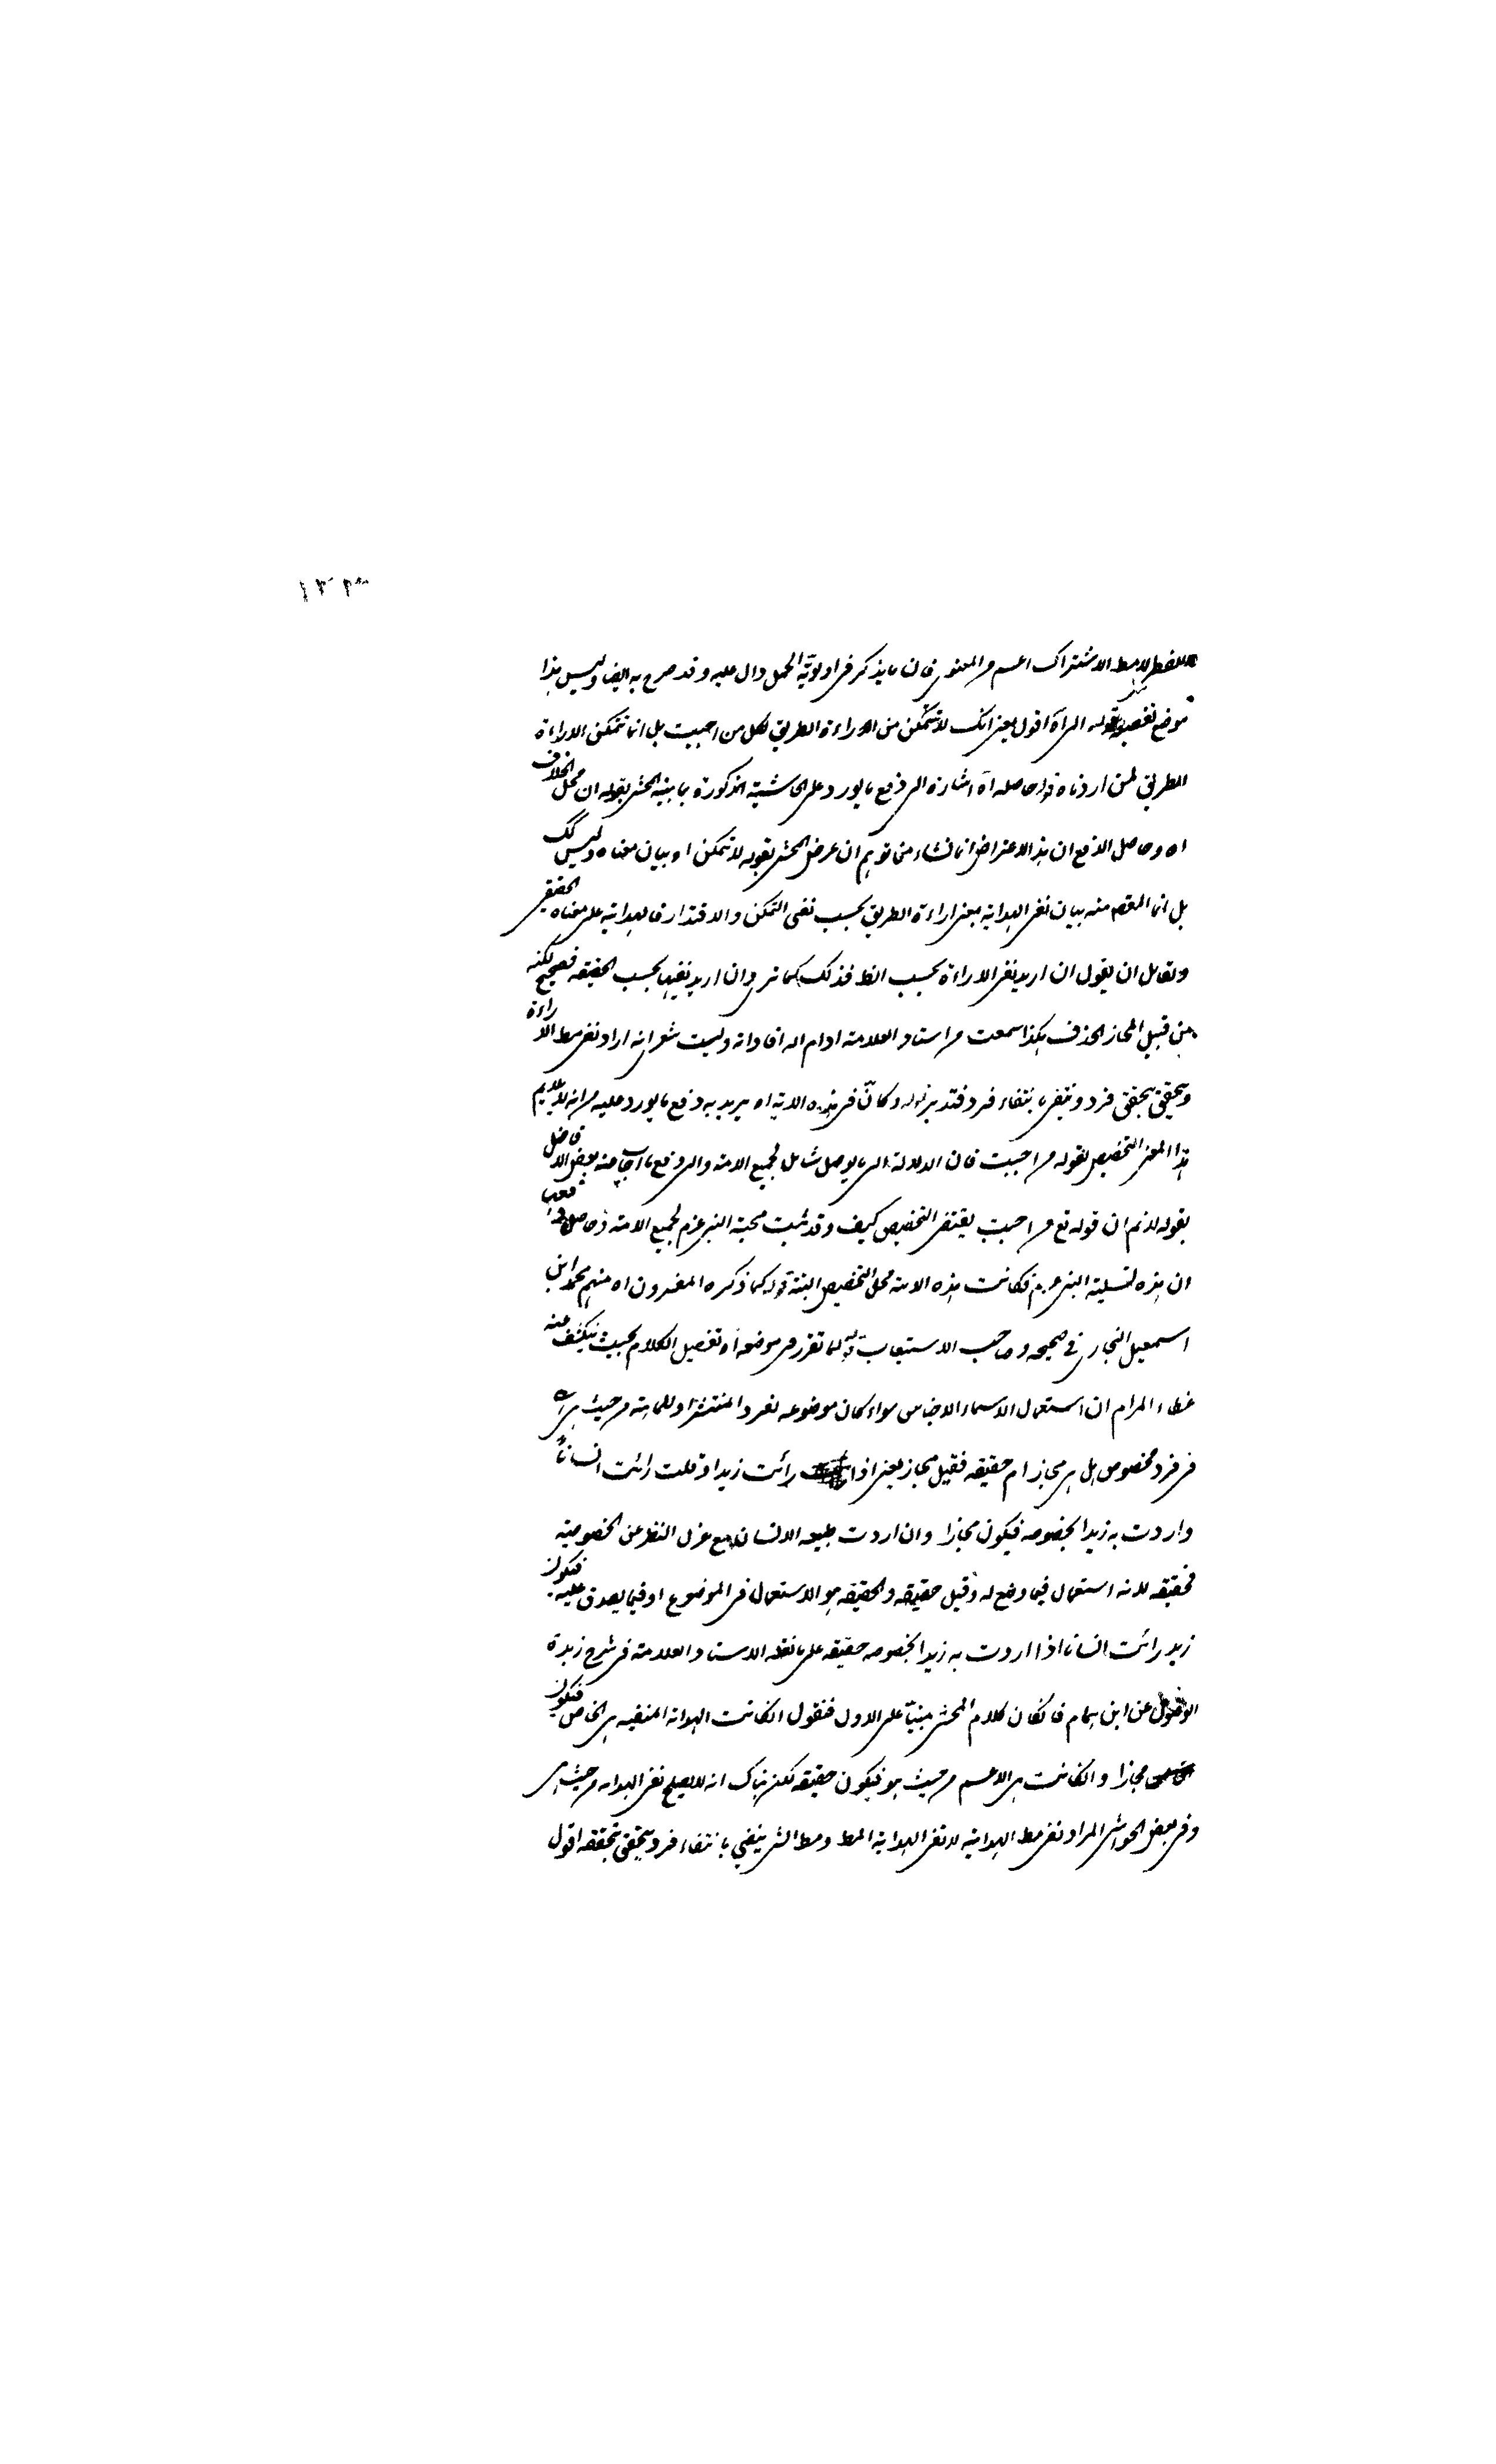 اللفظ لا مط الاشتراك اعم من المعنوى فان ما يذكر فى اولوية الحمل دال عليه وقد صرح به ايضا وليس هذا
موضع تفصيله قوله المرآة اقول يعنى انك لا تتمكن من اراءة الطريق لكل من احببت بل انما تتمكن الاراءة
الطريق لمن اردناه قوله حاصله آه اشارة الى دفع ما يورد على الحاشية المذكورة بما بينه المحشى بقوله ان محل الخلاف
اه وحاصل الدفع ان هذا الاعتراض انما نشاء من توهم ان غرض المحشى بقوله لا تتمكن اه بيان معناه وليس كك
بل انما المقصد منه بيان نفى الهداية بمعنى اراءة الطريق بحسب نفى التمكن والاقتدار فالهداية على معناه الحقيقى
ولقايل ان يقول ان اريد نفى الاراءة بحسب الظ فذلك كما ترى وان اريد نفيها بحسب الحقيقة فصحيح لكنه
من قبيل المجاز الحذف هكذا سمعت من استاد العلامة ادام الله افاداته وليت شعرى انه اراد نفى مط الاراءة
ويتحقق بتحقق فرد وينتفى بانتفاء فرد فتدبر قوله وكان فى هذه الاية اه يريد به دفع ما يورد عليه من انه لا يلايم
هذا المعنى التخصيص بقوله من احببت فان الدلالة الى ما يوصل شامل لجميع الامة والى دفع ما اجاب عنه بعض الافاضل
بقوله لا نم ان قوله تع من احببت يقتضى التخصيص كيف وقد ثبت محبة النبى عم لجميع الامة وحاصل دفعها
ان هذه لتسلية النبى عم فكانت هذه الاية محل التخصيص البتة قوله كما ذكره المفسرون اه منهم محمد ابن
اسمعيل البخارى فى صحيحه وصاحب الاستيعاب قوله لما تقرر فى موضعه اه تفصيل الكلام بحيث ينكشف عنه
غطاء المرام ان استعمال الاسماء الاجناس سواء كان موضوعه لفرد المنتشر او للماهية من حيث هى
فى فرد مخصوص هل هى مجاز ام حقيقة فقيل مجاز يعنى اذا رائت زيدا وقلت رائت انسانا
واردت به زيدا بخصوصه فيكون مجازا وان اردت طبيعة الانسان مع عزل النظر عن الخصوصية
فحقيقة لانه استعمال فيما وضع له وقيل حقيقة والحقيقة هو الاستعمال فى الموضوع او فيما يصدق عليه فيكون
زيد رائت انسانا اذا اردت به زيدا بخصوصه حقيقة على ما نقله الاستاد العلامة فى شرح زبدة
الاصول عن ابن همام فاذا كان كلام المحشى مبنيا على الاول فنقول ان كانت الهداية المنفية هى الخاص فيكون
مجازا وان كانت هى الاعم من حيث هو فيكون حقيقة لكن هناك انه لا يصلح نفى الهداية من حيث هى
وفى بعض الحواشى المراد نفى مط الهداية لا نفى الهداية المط ومط الشى ينتفي بانتفاء فرد ويتحقق بتحققه اقول